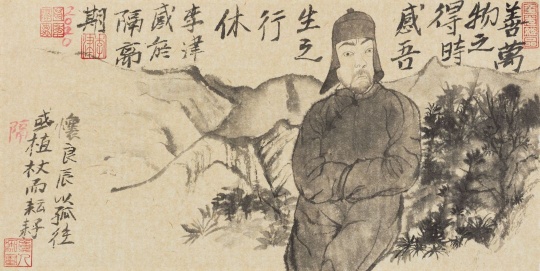 善萬
物之
得時
感吾
生之
行
休
李津
感於
隔离
期
2020
懷良辰以孤往
或植杖而耘耔